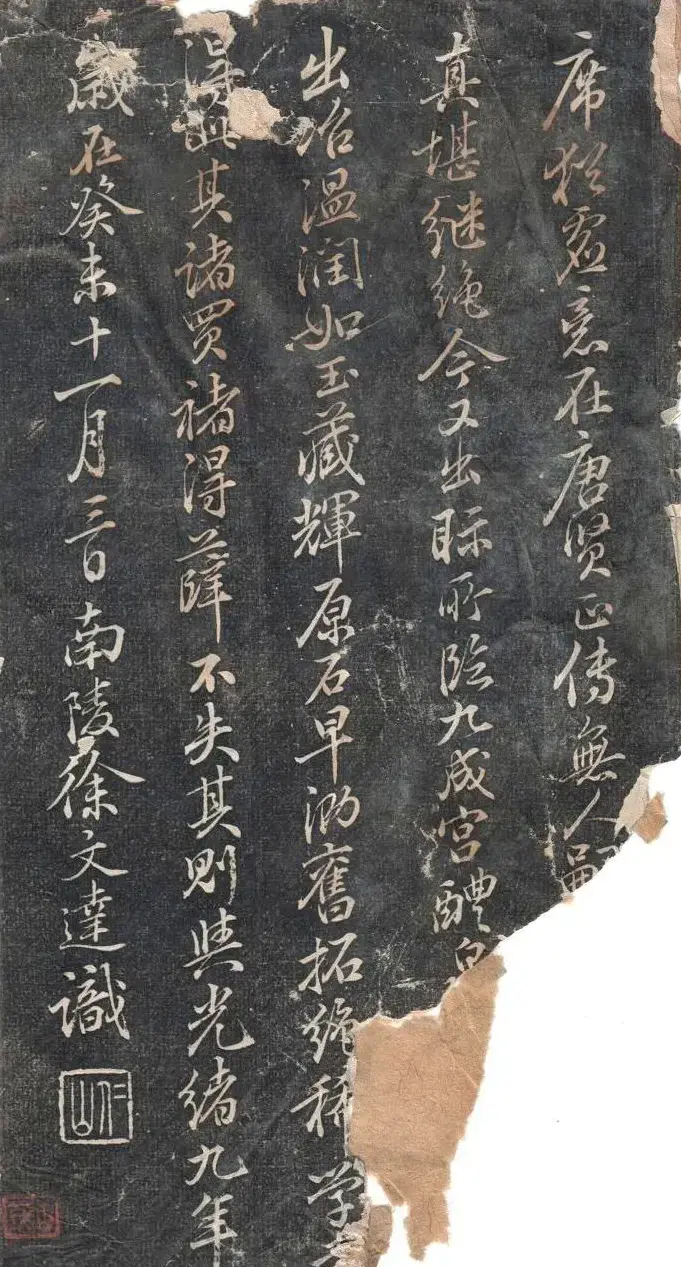 席犹虚意在唐贤正传無人嗣
真堪继绝今又出眎所临九成宫醴泉
出冶温润如玉藏輝原石早泐舊拓绝稀学者
得此其诸買褚得薛不失其则與光绪九年
歲在癸未十一月三日南陵徐文達識
仁山